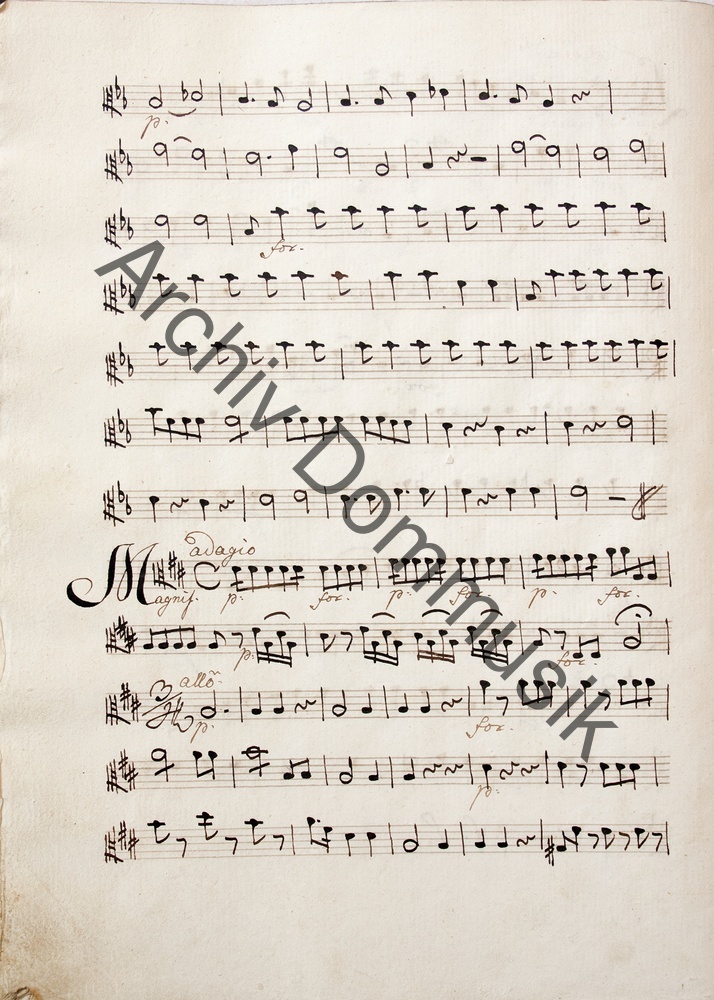 p.
for.
adagio
Magnif. p. for. p. for. p. for.
p. for.
3/4 allo. p. for.
p.
Archiv Dommusik